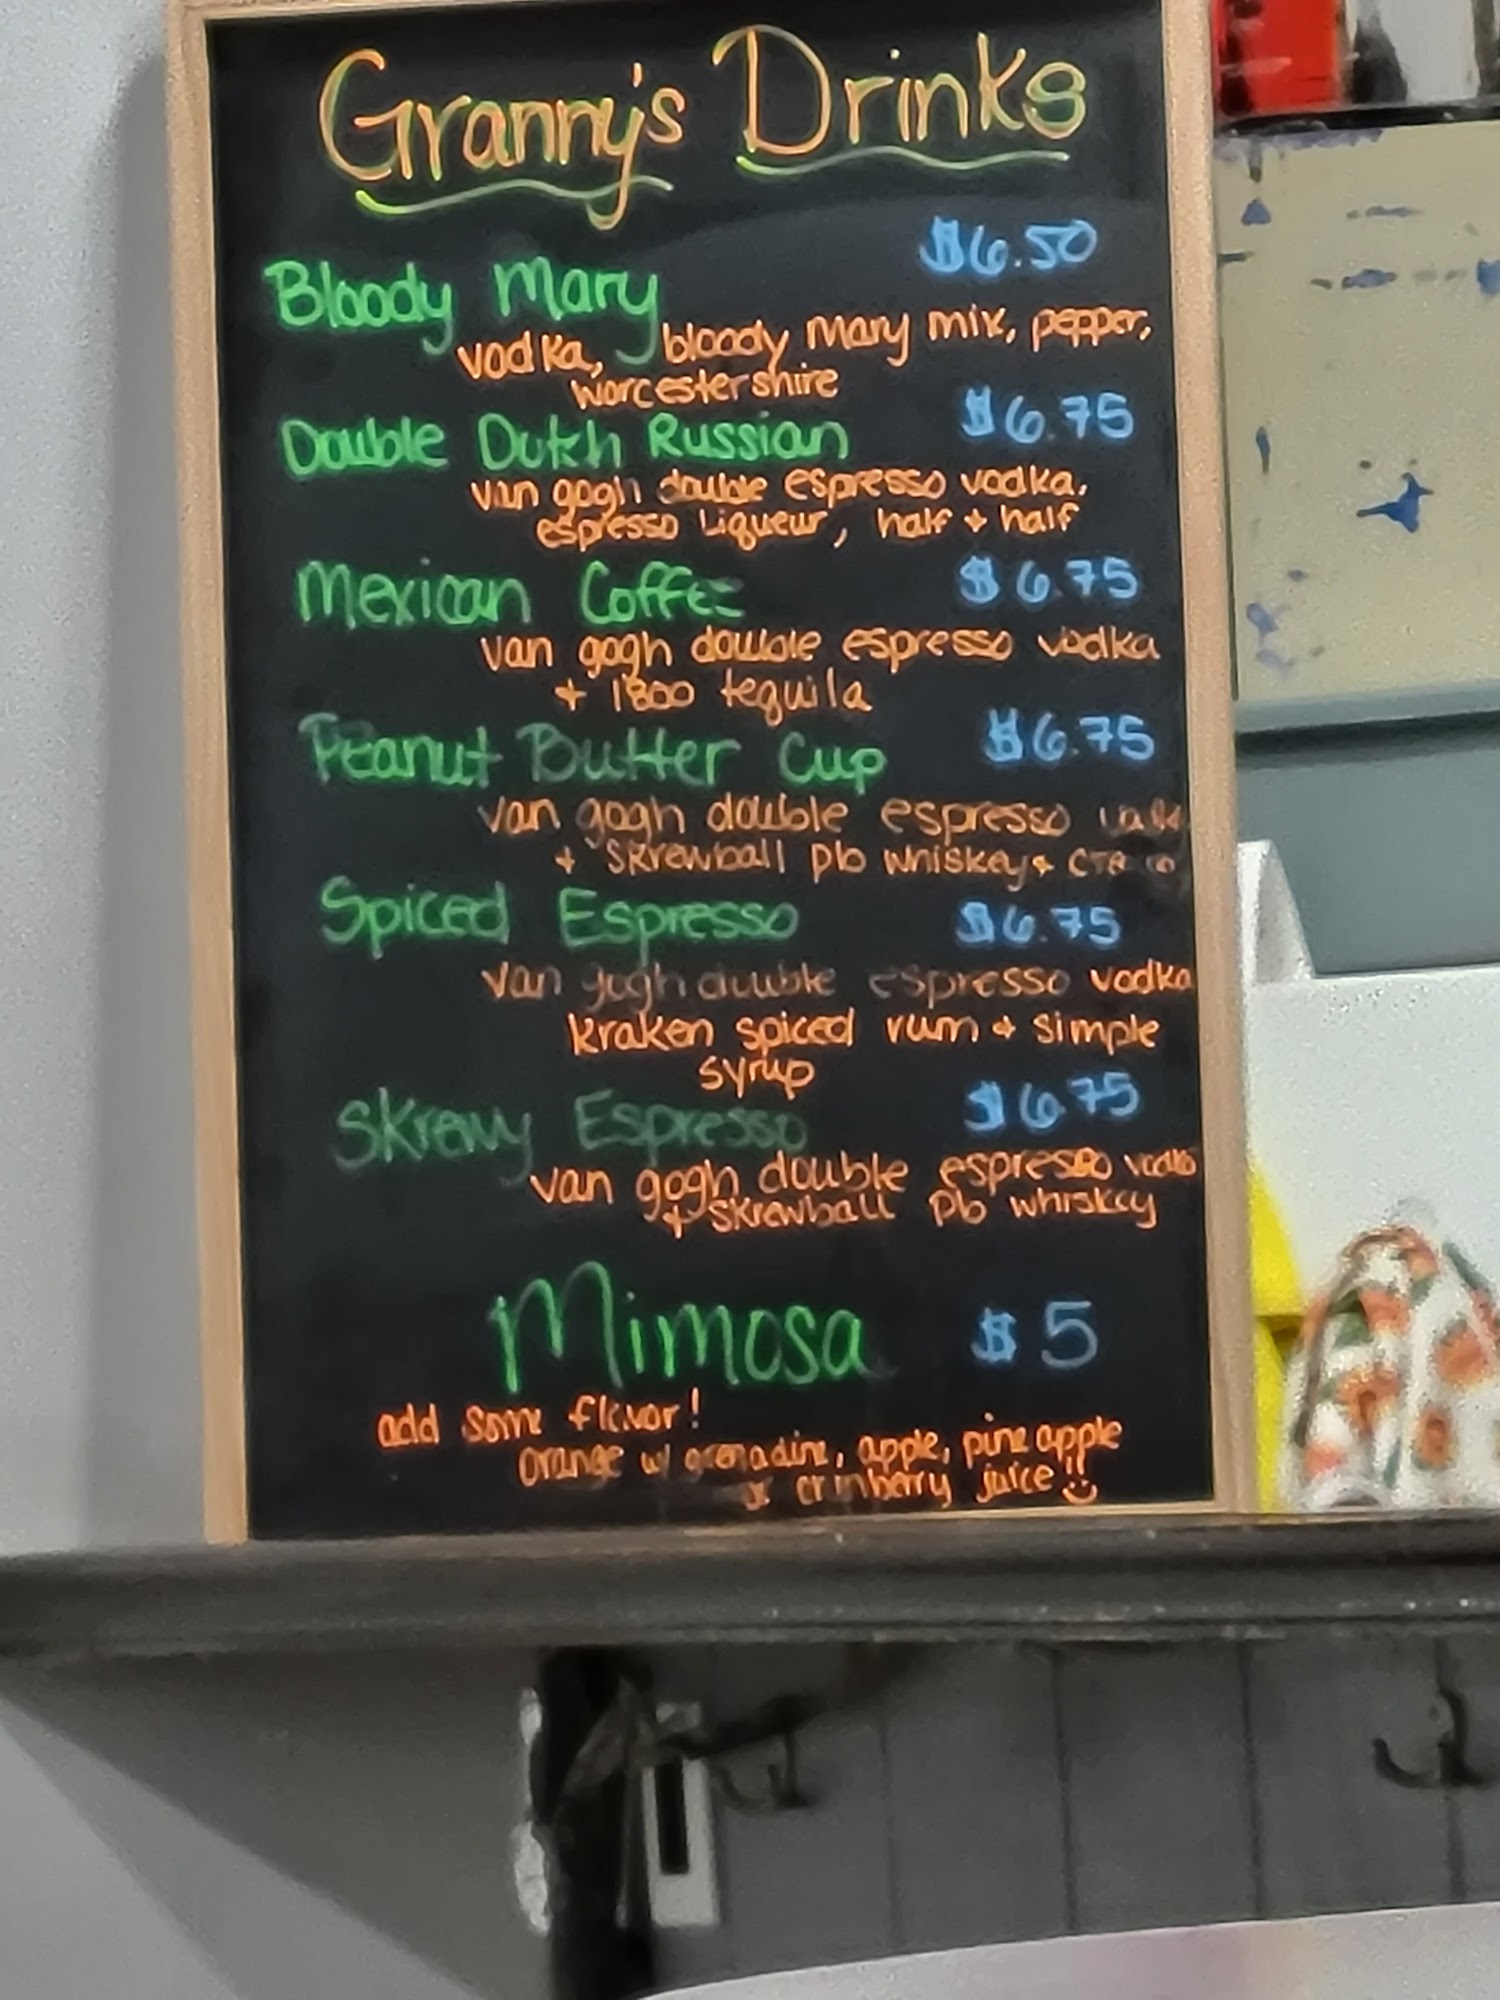 Granny's Drinks
Bloody Mary $6.50
vodka, bloody mary mix, pepper,
worcestershire
Double Dutch Russian $6.75
van gogh double espresso vodka,
espresso liqueur, half + half
Mexican Coffee $6.75
van gogh double espresso vodka
+ 1800 tequila
Peanut Butter Cup $6.75
van gogh double espresso
+ skrewball pb whiskey +
Spiced Espresso $6.75
van gogh double espresso vodka
kraken spiced rum + simple
syrup
Skrewy Espresso $6.75
van gogh double espresso vodka
+ skrewball pb whiskey
Mimosa $5
add some flavor!
orange w/ grenadine, apple, pineapple
or crinberry juice!